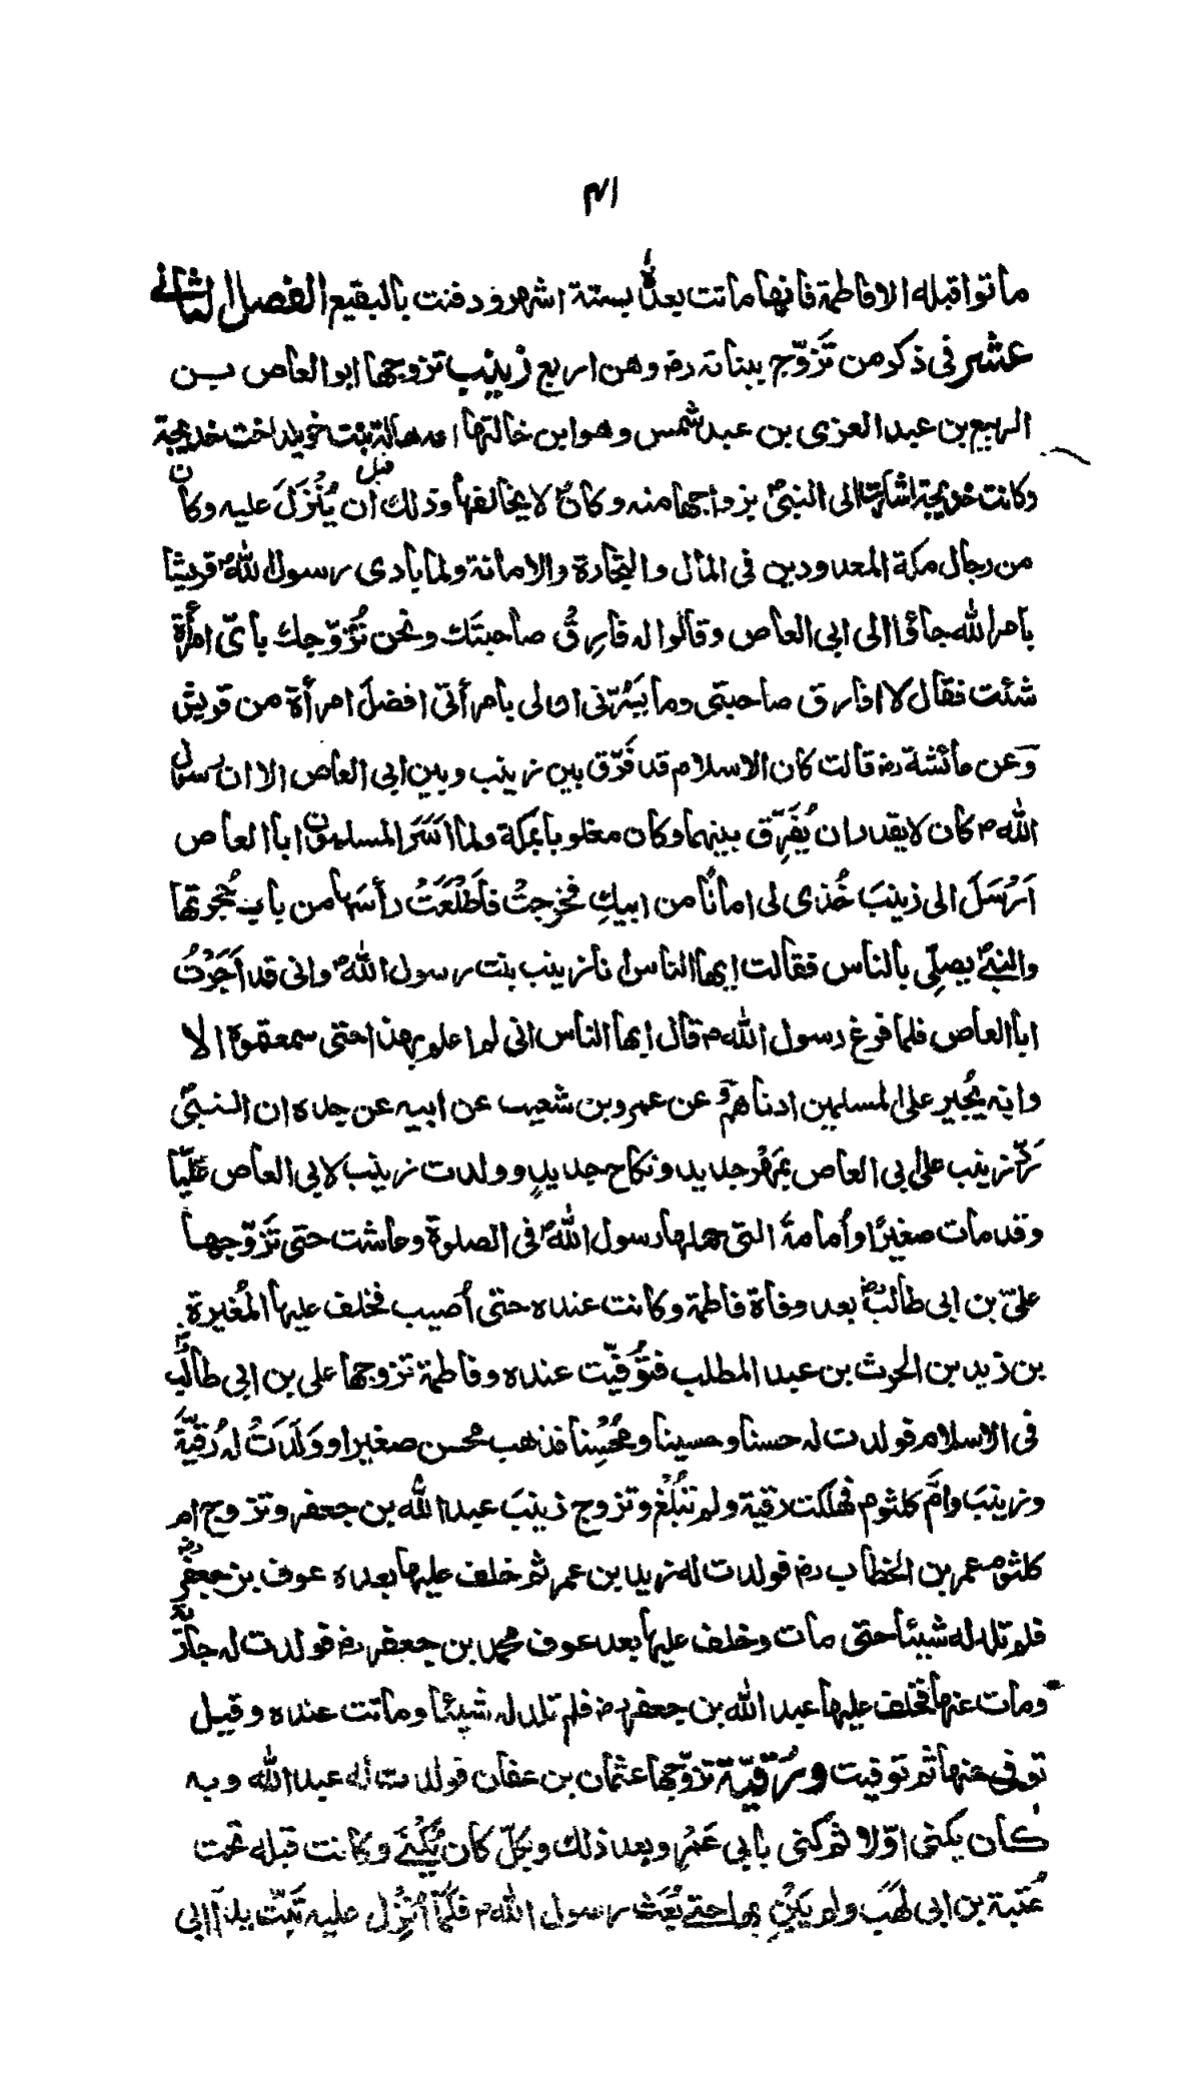 ٣١
ماتوا قبله الا فاطمة فانها ماتت بعده بستة اشهر ودفنت بالبقيع الفصل الثاني
عشر في ذكر من تَزَوّج ببناته رضـ وهن اربع زينب تزوجها ابو العاص بن
الربيع بن عبد العزى بن عبد شمس وهو ابن خالتها امه هالة بنت خويلد اخت خديجة
وكانت خديجة اشارت الى النبيؐ بزواجها منه وكانؐ لا يخالفها وذلك قبل ان يُنْزَلَ عليه وكان
من رجال مكة المعدودين في المال والتجارة والامانة ولما بادى رسول اللهؐ قريشا
بامر الله جاؤا الى ابي العاص وقالوا له فارِقْ صاحبتَك ونحن نُزَوّجك باىّ امرأة
شئت فقال لا افارق صاحبتى وما يَسُرّنى ان لى بامرأتى افضلَ امرأة من قريش
وعن عائشة رضـ قالت كان الاسلام قد فَرّق بين زينب وبين ابى العاص الا ان رسول
الله م كان لا يقدر ان يُفَرِّق بينهما وكان مغلوبا بمكة ولما اَسَرَ المسلمون ابا العاص
اَرْسَلَ الى زينبَ خُذى لى امانًا من ابيكِ فخرجتْ فاَطْلَعَتْ رأسَها من باب حُجرتها
والنبيؐ يصلّى بالناس فقالت ايها الناس انا زينب بنت رسول اللهؐ وانى قد اَجَرْتُ
ابا العاص فلما فرغ رسول الله م قال ايها الناس انى لم اعلم بهذا حتى سمعتموه الا
وانه يُجير على المسلمين ادناهم وعن عمرو بن شعيب عن ابيه عن جده ان النبيؐ
رَدّ زينب على ابى العاص بمَهْر جديد ونكاح جديدٍ وولدت زينب لابى العاص عَليًّا
وقد مات صغيرًا واُمامةَ التى حملها رسول اللهؐ فى الصلوة وعاشت حتى تَزَوّجها
علىّ بن ابى طالب رضـ بعد وفاة فاطمة وكانت عنده حتى اُصيب فخلف عليها المُغيرة
بن زيد بن الحرث بن عبد المطلب فتُوُفِّيَت عنده وفاطمة تزوجها على بن ابى طالب رضـ
فى الاسلام فولدت له حسنا وحسينا ومُحْسِنا فذهب محسن صغيرا ووَلَدَتْ له رُقَيَّةَ
وزينبَ وامَّ كلثوم فهلكت رقية ولم تَبْلُغْ وتزوج زينبَ عبدُ الله بن جعفر وتزوج ام
كلثوم عمر بن الخطاب رضـ فولدت له زيد بن عمر ثم خلف عليها بعده عوف بن جعفر رضـ
فلم تلد له شيئا حتى مات وخلف عليها بعد عوف محمد بن جعفر رضـ فولدت له جارية
ومات عنها فخلف عليها عبد الله بن جعفر رضـ فلم تلد له شيئا وماتت عنده وقيل
توفى عنها ثم توفيت ورُقَيّة تزوّجها عثمان بن عفان فولدت له عبد الله وبه
كان يكنى اوّلا ثم كنى بابى عَمْرو بعد ذلك وبكلّ كان يُكْنَى وكانت قبله تحت
عُتبة بن ابى لهَب ولم يَبْنِ بها حتى بُعِثَ رسول الله م فلَمّا اُنْزِل عليه تَبَّت يدا ابى